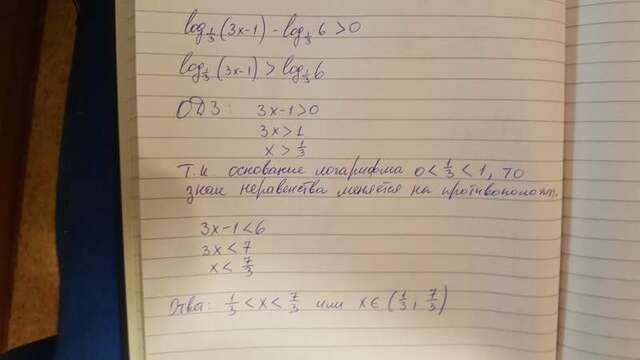 log_{1/3}(3x-1) - log_{1/3} 6 > 0
log_{1/3}(3x-1) > log_{1/3} 6
ОДЗ: 3x-1>0
3x>1
x > 1/3
Т.к основание логарифма 0 < 1/3 < 1, то
знак неравенства меняется на противополож.
3x-1<6
3x<7
x < 7/3
Ответ: 1/3 < x < 7/3 или x ∈ (1/3; 7/3)